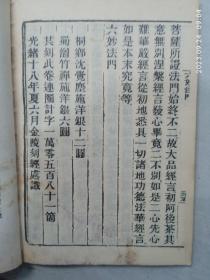 菩薩所證法門始終不二故大品經言初阿後荼其
意無別涅槃經言發心畢竟二不別如是二心先心
難華嚴經言從初地悉具一切諸地功德法華經言
如是本末究竟等
六妙法門
桐鄉沈施洋銀十二圓
蜀僧竹禪施洋銀六圓
刻此卷連圈計字一萬零五百八十一箇
光緒十八年夏六月金陵刻經處識